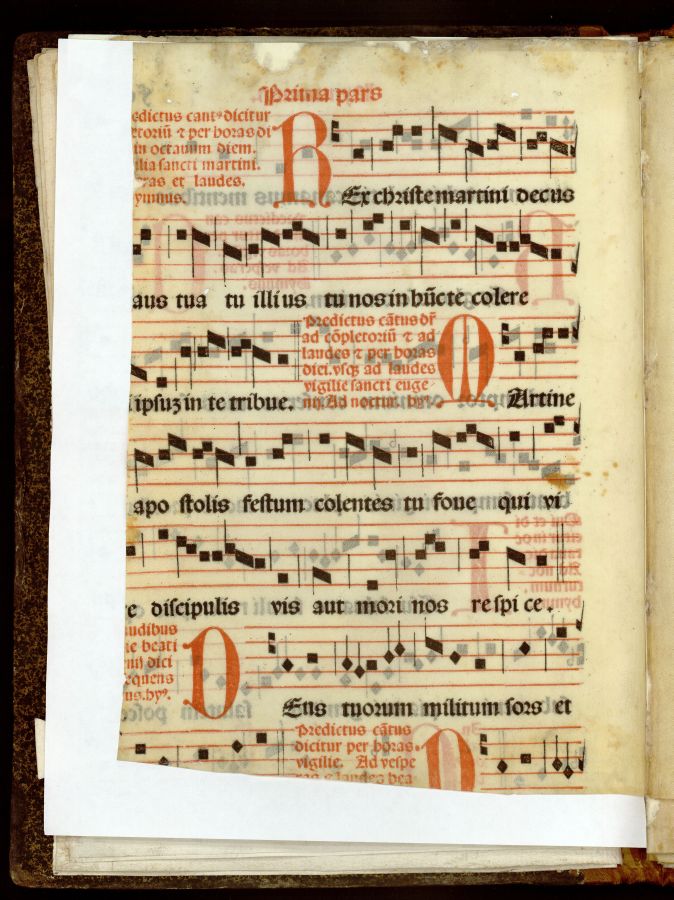 Prima pars
edictus cantꝰ dicitur
etoriū ⁊ per horas di
in octauum diem.
ilia sancti martini.
ras et laudes.
ymnus.
REx christe martini decus
aus tua tu illius tu nos in hūc te colere
Predictus cātus dr̄
ad cōpletoriū ⁊ ad
laudes ⁊ per horas
diei. vsqꝫ ad laudes
vigilie sancti euge
nij. Ad noctur. hyꝰ.
ipsuꝫ in te tribue. MArtine
apo stolis festum colentes tu foue qui vi
e discipulis vis aut mori nos respi ce.
audibus
te beati
nij dici
equens
us. hyꝰ.
DEus tuorum militum sors et
Predictus cātus
dicitur per horas.
vigilie. Ad vespe
ras ⁊ laudes bea